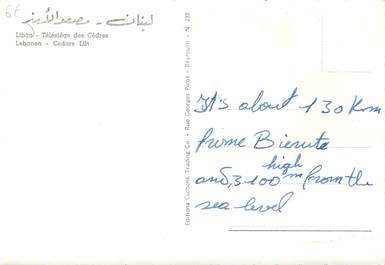 6€
لبنان - مصعد الأرز
Liban - Télésiège des Cèdres
Lebanon - Cedars Lift
Editions Culturik Trading Co. - Rue Georges Picot - Beyrouth - N 233
It's about 130 Km
frume Bierute
high
and, 3100 m from the
sea level